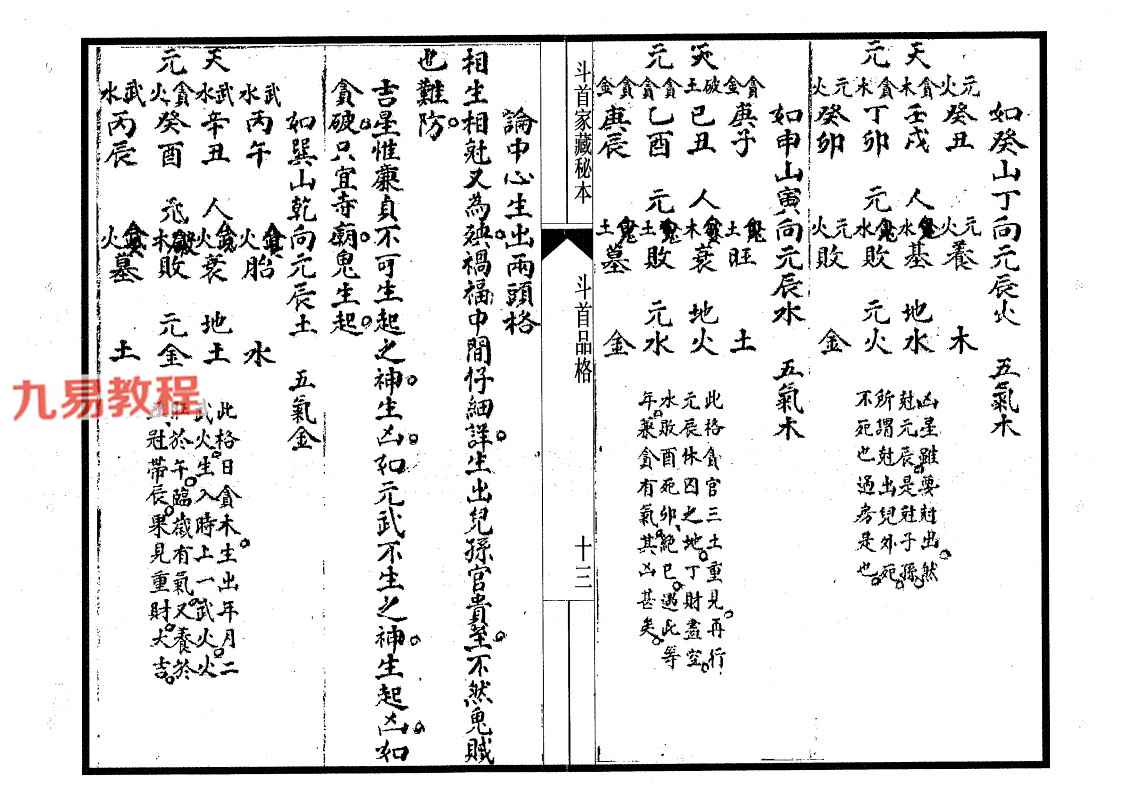 如癸山丁向元辰火 五氣木
天元
火元 癸丑 火元 養 木
木貪 壬戌 人 水鬼 墓 地水
木貪 丁卯 元 水鬼 敗 元火
火元 癸卯 火元 敗 金
凶星雖要尅出然
尅元辰是尅子孫
所謂尅出兒外死
不死也過房是也
如申山寅向元辰水 五氣木
天元
金貪 庚子 土鬼 旺 土
土破 己丑 人 衰 地火
貪 乙酉 元 土鬼 敗 元水
金貪 庚辰 土鬼 墓 金
此格貪官三土重見再行
元辰休囚之地丁財盡空
水敗酉死卯絕巳遇此等
年藥貪有氣其凶甚矣
斗首家藏秘本
斗首品格
十三
論中心生出兩頭格
相生相尅又為殃禍福中間仔細詳生出兒孫官貴至不然鬼賊
也難防
吉星惟廉貞不可生起之神生凶如元武不生之神生起凶如
貪破只宜寺廟鬼生起
如巽山乾向元辰土 五氣金
天元
水武 丙午 火 胎 水
水武 辛丑 人 火 衰 地土
火貪 癸酉 元 木 敗 元金
水武 丙辰 火 墓 土
此格日貪木生出年月二
武火生入時上一武火火
旺於午臨歲有氣又養於
丑冠帶辰果見重財大吉
九易教程